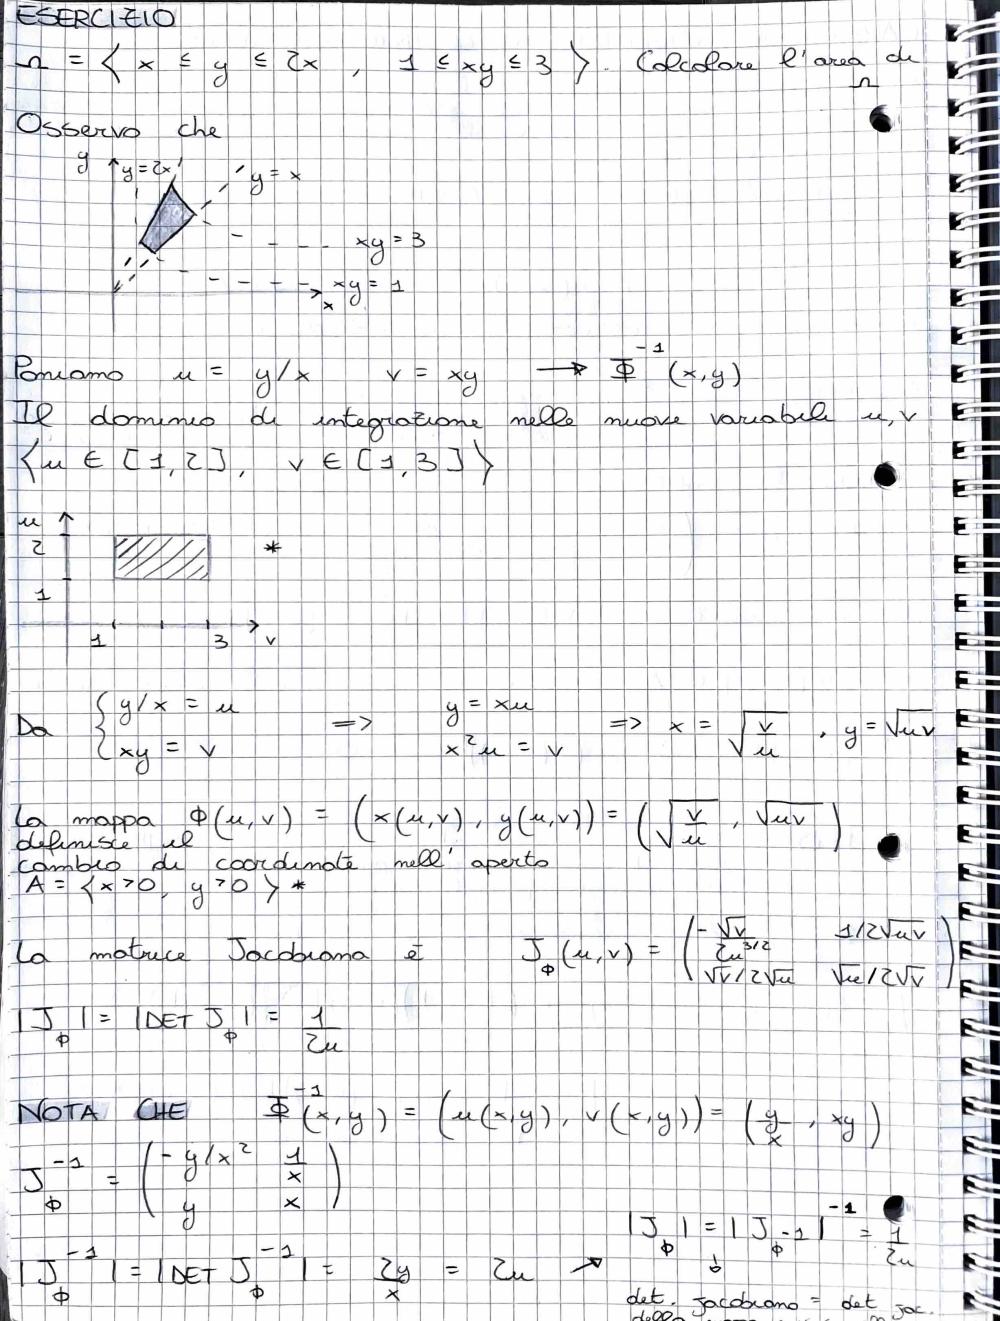 ESERCIZIO
Ω = { x ≤ y ≤ 2x , 1 ≤ xy ≤ 3 }. Calcolare l'area di Ω
Osservo che
y y = 2x y = x
xy = 3
xy = 1
x
Poniamo u = y/x v = xy → Φ⁻¹(x,y)
Il dominio di integrazione nelle nuove variabili u, v
{ u ∈ [1,2], v ∈ [1,3] }
u
2 *
1
1 3 v
Da { y/x = u => y = xu => x = √(v/u) , y = √(uv)
{ xy = v x²u = v
La mappa Φ(u,v) = (x(u,v), y(u,v)) = (√(v/u), √(uv))
definisce il
cambio di coordinate nell'aperto
A = { x>0, y>0 } *
La matrice Jacobiana è J_Φ(u,v) = ( -√v/2u^(3/2) 1/2√(uv)
√v/2√u √u/2√v )
|J_Φ| = |DET J_Φ| = 1/2u
NOTA CHE Φ⁻¹(x,y) = (u(x,y), v(x,y)) = (y/x, xy)
J_Φ⁻¹ = ( -y/x² 1/x
y x )
|J_Φ⁻¹| = |DET J_Φ⁻¹| = 2y/x = 2u ↗ |J_Φ| = |J_Φ-1|⁻¹ = 1/2u
det. jacobiano = det jac.